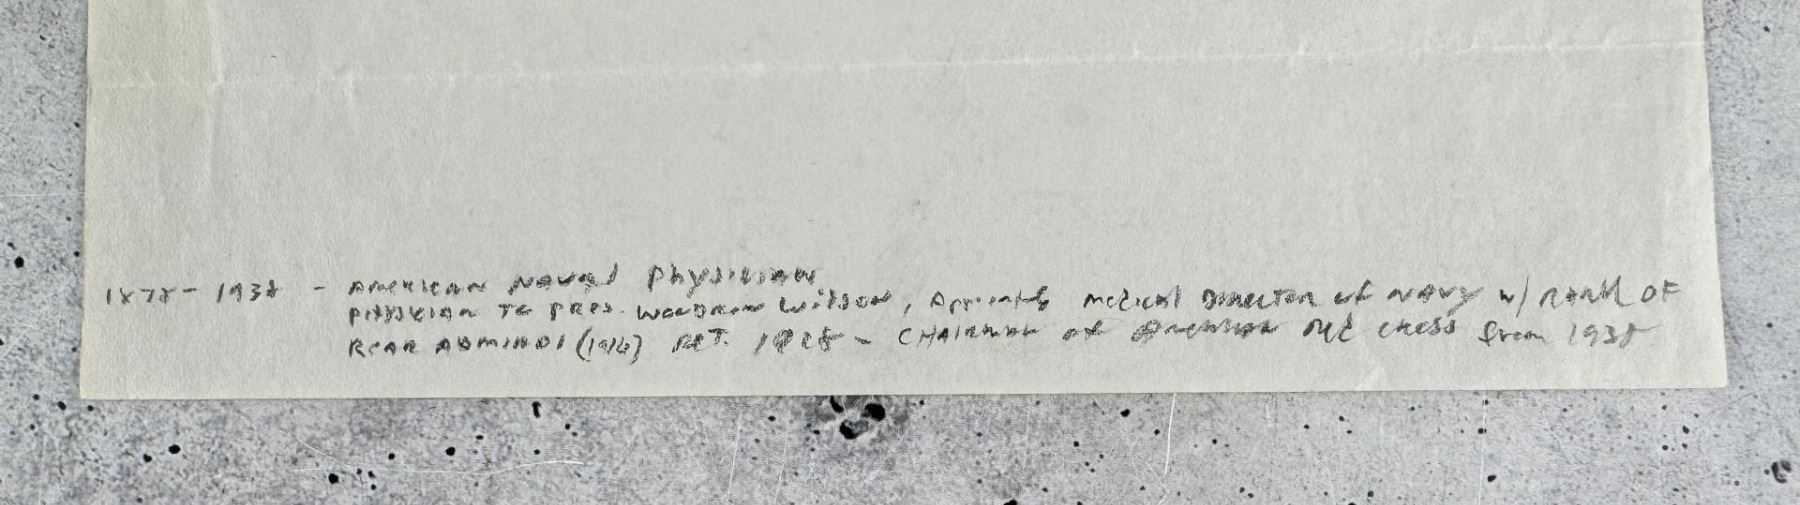 1878 - 1938 - American Naval Physician
Physician To Pres. Woodrow Wilson, Appointed Medical Director of Navy w/ Rank OF
Rear Admiral (1916) Ret. 1928 - Chairman of American Red Cross from 1938